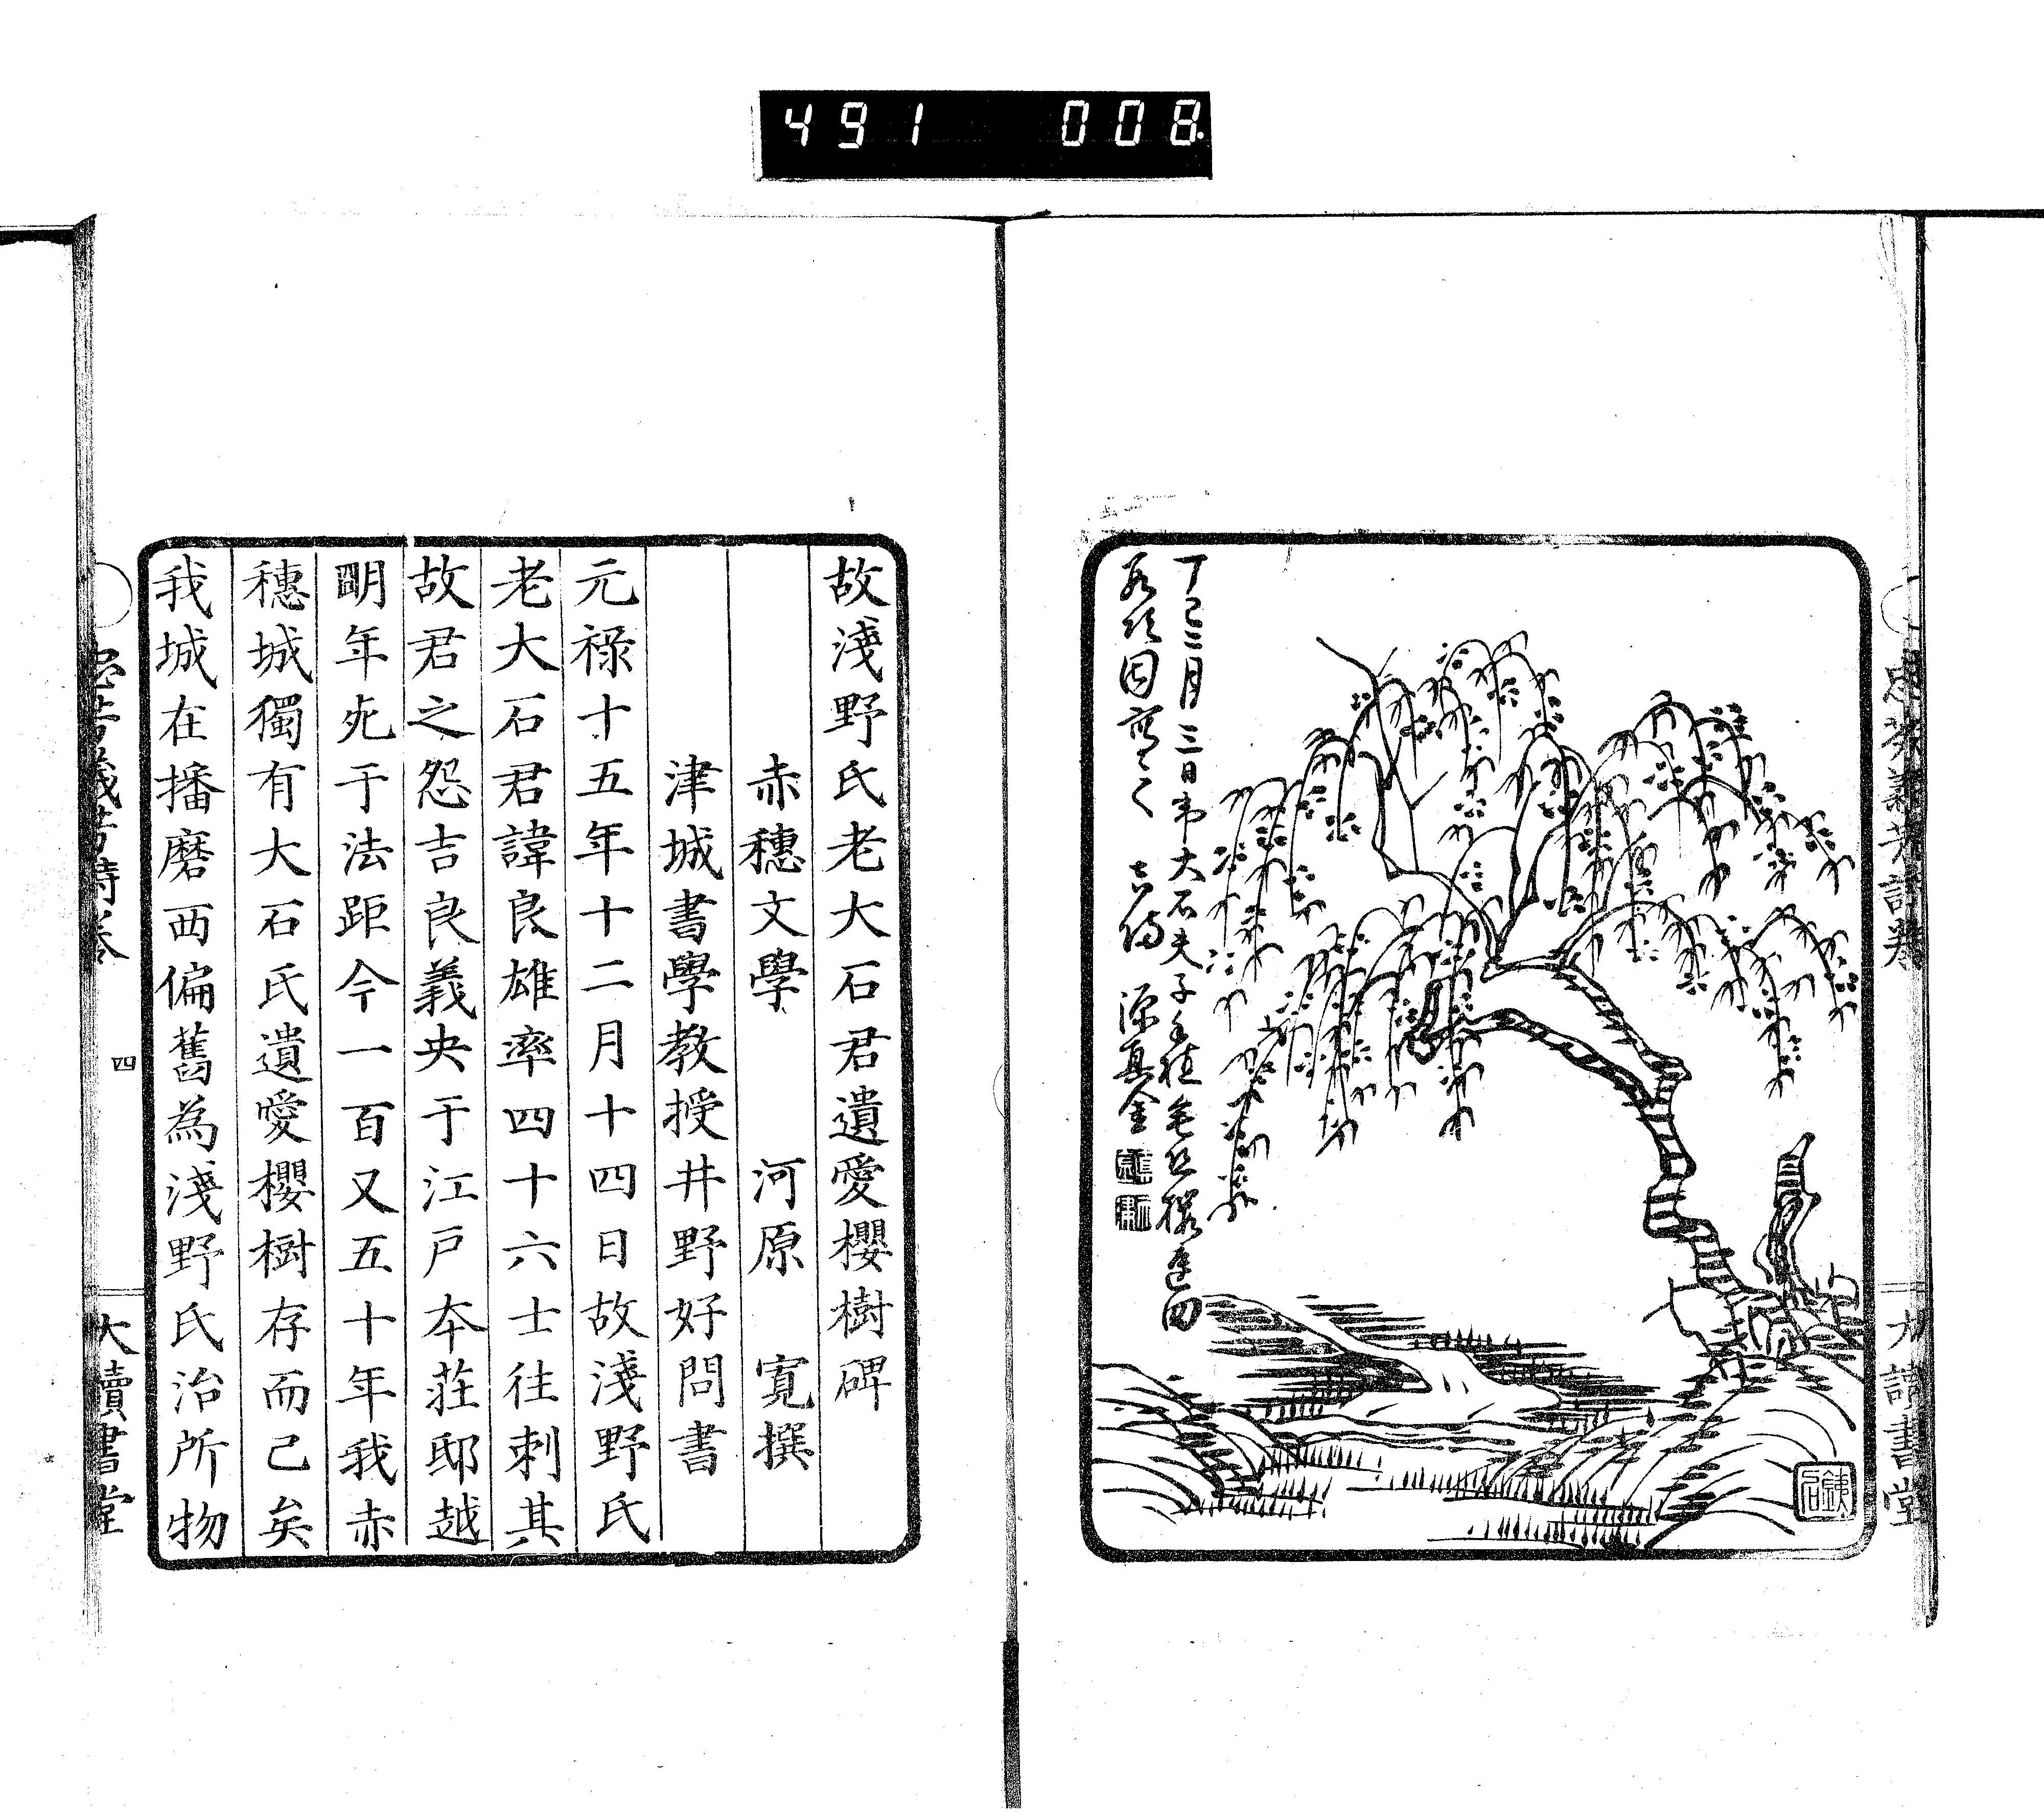 491 008
丁巳二月三日弔大石夫子手植
源
大讀書堂
故淺野氏老大石君遺愛櫻樹碑
赤穗文學 河原 寬撰
津城書學教授井野好問書
元祿十五年十二月十四日故淺野氏
老大石君諱良雄率四十六士往刺其
故君之怨吉良義央于江戶本莊邸越
明年死于法距今一百又五十年我赤
穗城獨有大石氏遺愛櫻樹存而已矣
我城在播磨西偏舊為淺野氏治所物
四
大讀書堂